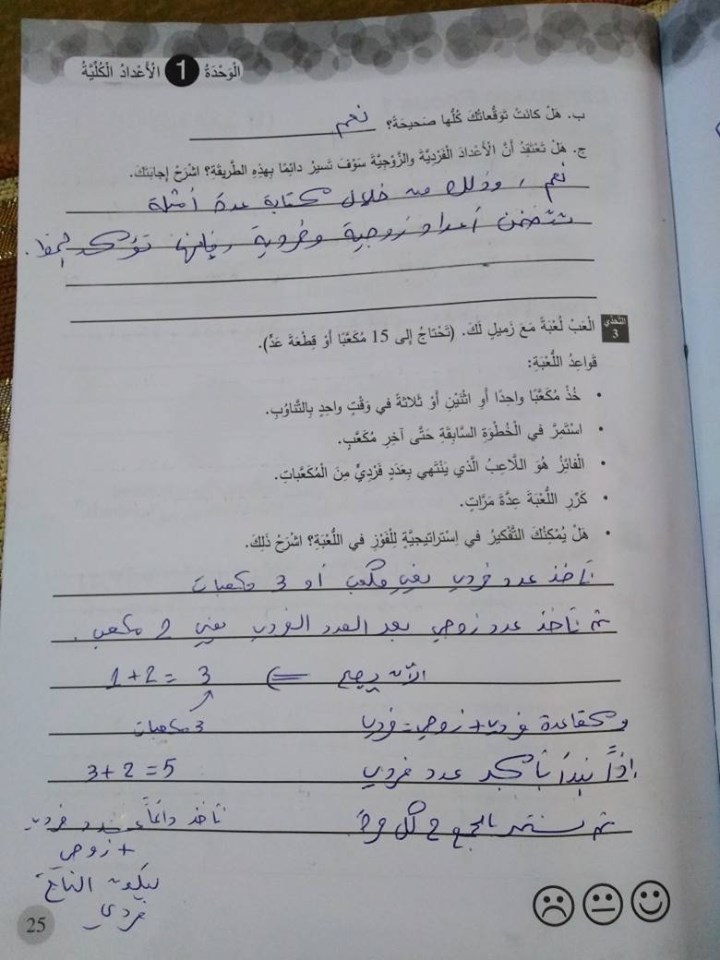 الْوَحْدَةُ 1 الْأَعْدادُ الْكُلِّيَّةُ
ب. هَلْ كانَتْ تَوَقُّعاتُكَ كُلُّها صَحيحَةً؟ نعم
ج. هَلْ تَعْتَقِدُ أَنَّ الْأَعْدادَ الْفَرْدِيَّةَ والزَّوْجِيَّةَ سَوْفَ تَسيرُ دائِمًا بِهذِهِ الطَّريقَةِ؟ اشْرَحْ إِجابَتَكَ.
نعم، وذلك من خلال كتابة عدة أمثلة
تتضمن أعداد زوجية وفردية فإنها تؤكد النمط.
التَّحَدّي 3 الْعَبْ لُعْبَةً مَعَ زَميلٍ لَكَ. (تَحْتاجُ إِلى 15 مُكَعَّبًا أَوْ قِطْعَةَ عَدٍّ).
قَواعِدُ اللُّعْبَةِ:
• خُذْ مُكَعَّبًا واحِدًا أَوِ اثْنَيْنِ أَوْ ثَلاثَةً في وَقْتٍ واحِدٍ بِالتَّناوُبِ.
• اسْتَمِرَّ في الْخُطْوَةِ السَّابِقَةِ حَتَّى آخِرِ مُكَعَّبٍ.
• الْفائِزُ هُوَ اللَّاعِبُ الَّذي يَنْتَهي بِعَدَدٍ فَرْدِيٍّ مِنَ الْمُكَعَّباتِ.
• كَرِّرِ اللُّعْبَةَ عِدَّةَ مَرَّاتٍ.
• هَلْ يُمْكِنُكَ التَّفْكيرُ في اِسْتراتيجِيَّةٍ لِلْفَوْزِ في اللُّعْبَةِ؟ اشْرَحْ ذلِكَ.
نأخذ عدد فردي يعني مكعب أو 3 مكعبات
ثم نأخذ عدد زوجي بعد العدد الفردي يعني 2 مكعب.
الآن يصبح ⇐ 1+2=3
3 مكعبات
وكقاعدة فردي+زوجي=فردي
إذاً نبدأ بأكبر عدد فردي 3+2=5
ثم نستمر بالجمع في كل مرة
نأخذ دائماً عدد فردي
+ زوجي
ليكون الناتج
فردي
25